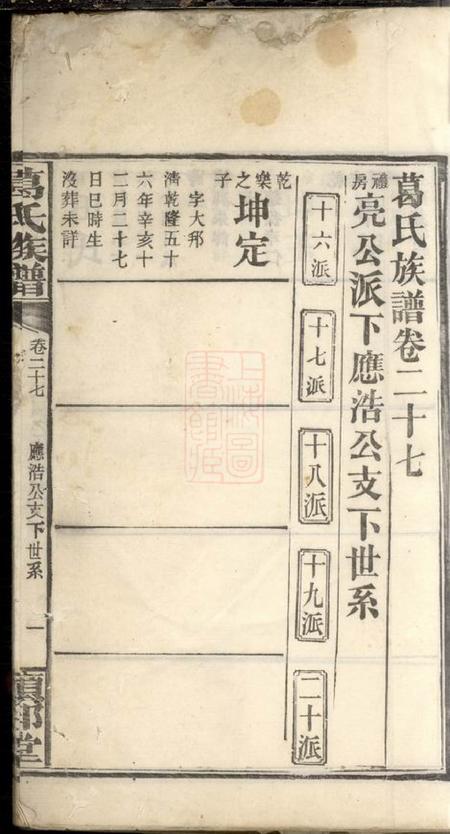 葛氏族譜卷二十七
禮房
亮公派下應浩公支下世系
十六派
十七派
十八派
十九派
二十派
乾樂之子
坤定
字大邦
清乾隆五十
六年辛亥十
二月二十七
日巳時生
沒葬未詳
葛氏族譜
卷二十七
應浩公支下世系
一
頓邱堂
上海圖書館藏